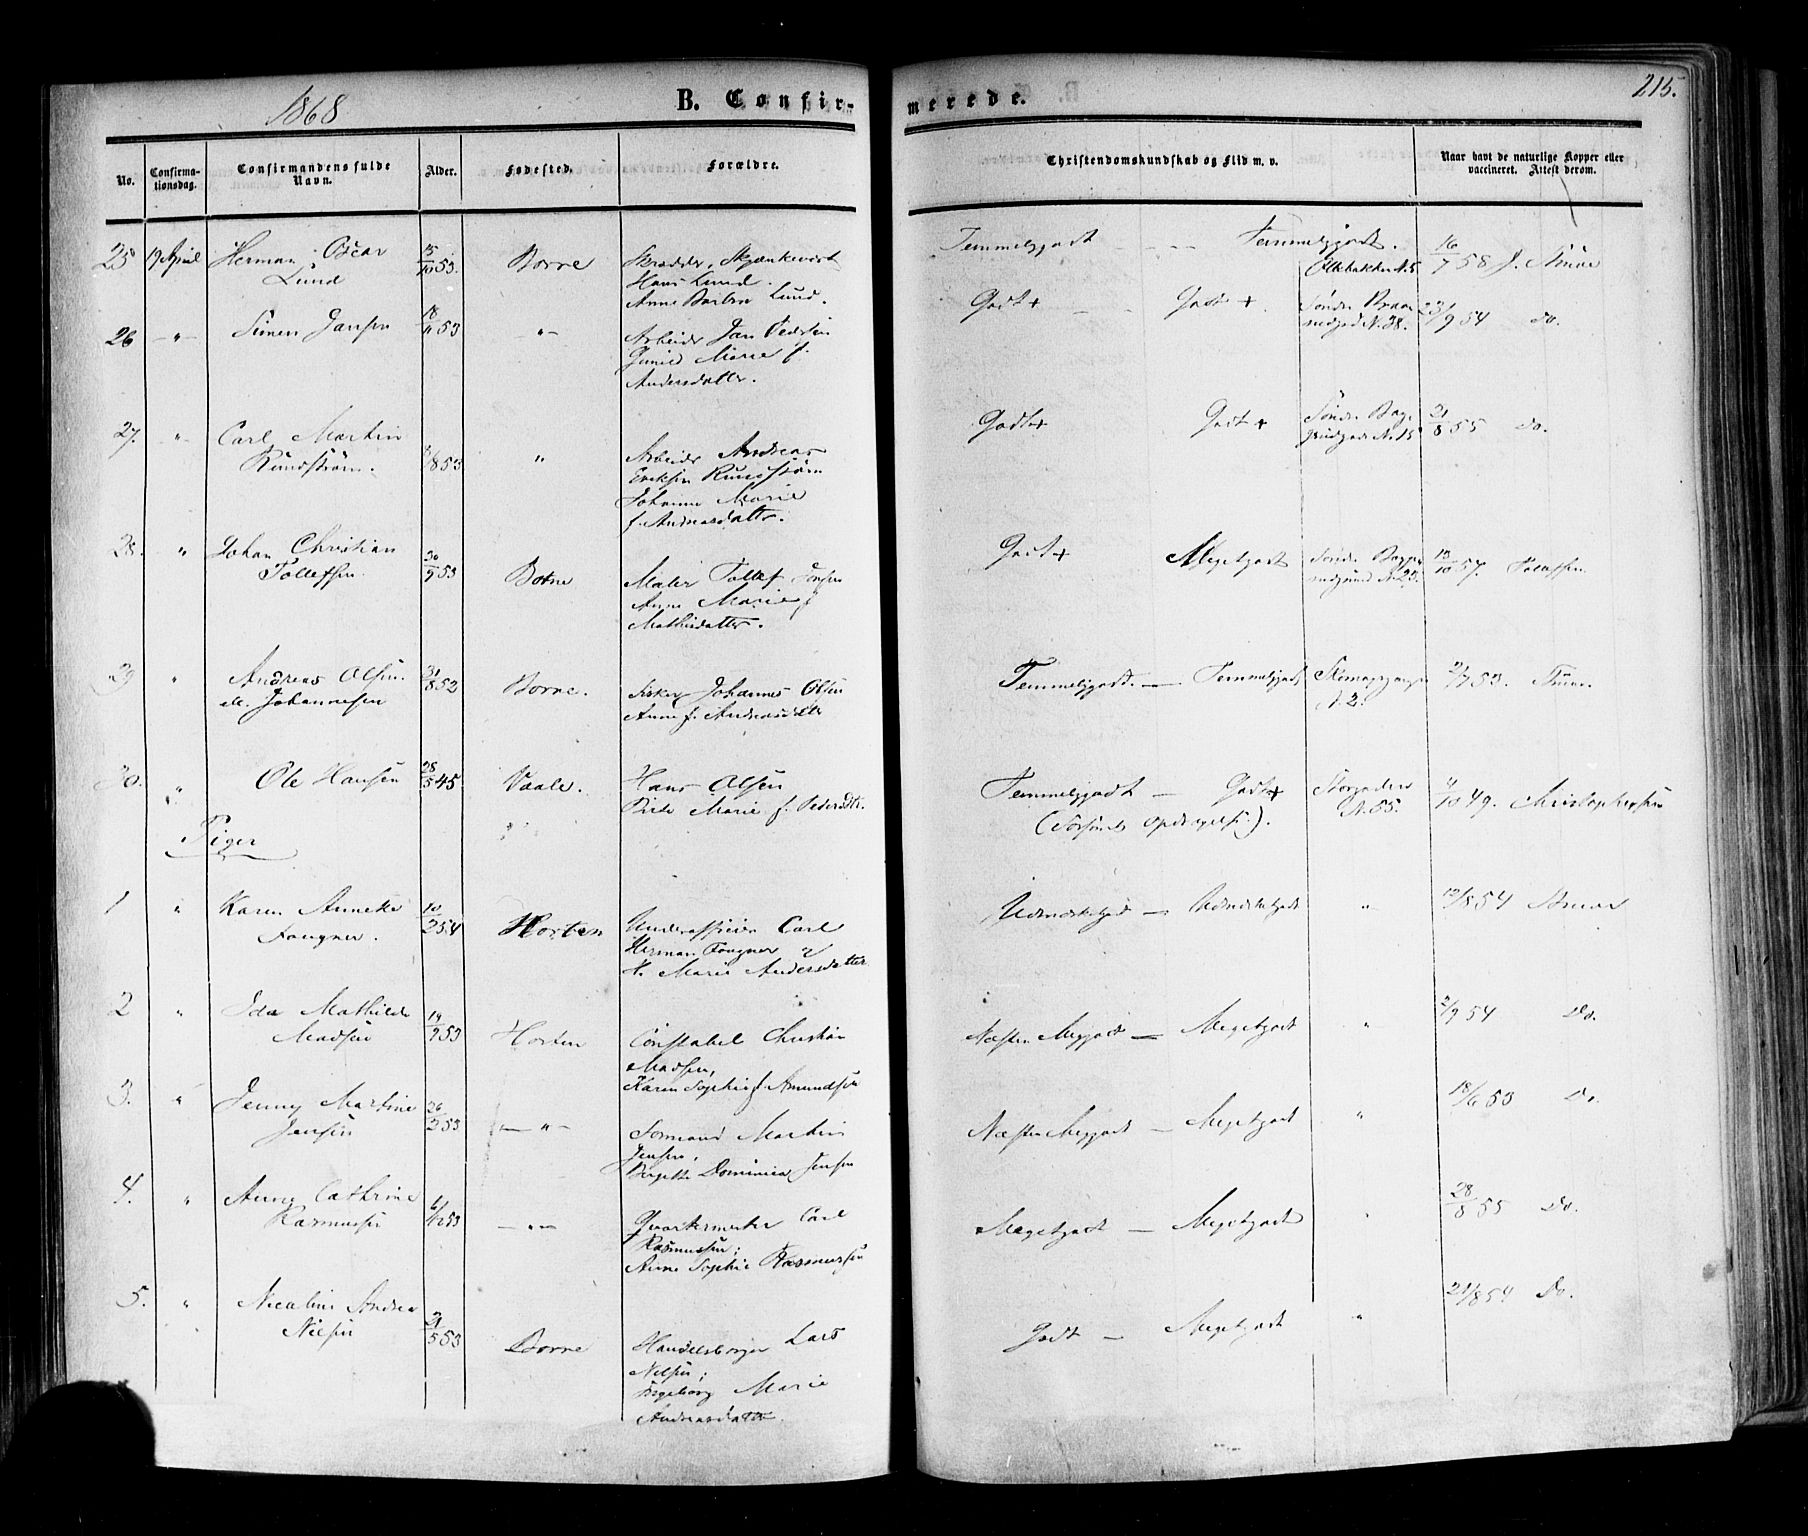 1868
B. Confir-
merede.
215.
No.
Confirma-
tionsdag.
Confirmandens fulde
Navn.
Alder.
Fødested.
Forældre.
Christendomskundskab og Flid m. v.
Naar havt de naturlige Kopper eller
vaccineret. Attest derom.
25 19 April Herman Oscar
Lund
15/10 53. Borre
Skrædder, Skjænkevert
Hans Lund.
Lund.
Temmeliggodt - - Temmeliggodt.
16/7 58
26 -"- Simen Jansen
18/11 53 -"-
Arbeider Jan
Marie f.
Andersdatter.
Godt+ - - Godt+
N. 38.
23/9 54 do.
27. " Carl Martin
Rundstrøm.
/8 53 "
Arbeider Andreas
Eriksen Rundstrøm
Johanne Marie
f. Andreasdatter.
Godt+ Godt+
21/8 55 Do.
28. " Johan Christian
Tollefsen.
30/9 53 Borre
Maler Tollef Jonsen
Anne Marie f
Mathisdatter.
Godt+ Megetgodt
13/10 57.
29 " Andreas Olsen
ell. Johannesen
31/8 52 Borre.
Fisker Johannes Olsen
Anne f. Andersdatter
Temmeliggodt. — Temmeliggodt
N. 2.
53.
30. " Ole Hansen
28/5 45 Vaale.
Hans Olsen
Marie f. Pedersdtr.
Temmeliggodt — Godt+
Storgaden
N. 55.
/10 49. Christophersen
Piger
1 " Karen Annette
Fougner.
10/2 54 Horten
Underofficier Carl
Herman Fougner
H. Marie Andersdatter
Udmærketgodt — Udmærketgodt "
12/8 54
2 " Ida Mathilde
Madsen
19/9 53 Horten
Constabel Christian
Madsen,
Karen Sophie f. Amundsen
Næsten Meggodt — Megetgodt "
2/9 54 Do.
3. " Jenny Martine
Jensen
26/2 53 — " —
Tømmermand Martin
Jensen,
Birgitte Dominica Jensen
Næsten Meggodt — Megetgodt "
18/6 53 Do.
4. " Anne Cathrine
Rasmussen
6/12 53 — " —
Qvarteermester Carl
Rasmussen;
Anne Sophie Rasmussen
Megetgodt — Megetgodt "
28/8 55 Do.
5. " Nicoline Andrea
Nilsen
21/5 53 Borre
Handelsborger Lars
Nilsen;
Ingeborg Marie
Andreasdatter.
Godt — Megetgodt "
21/8 54 Do.